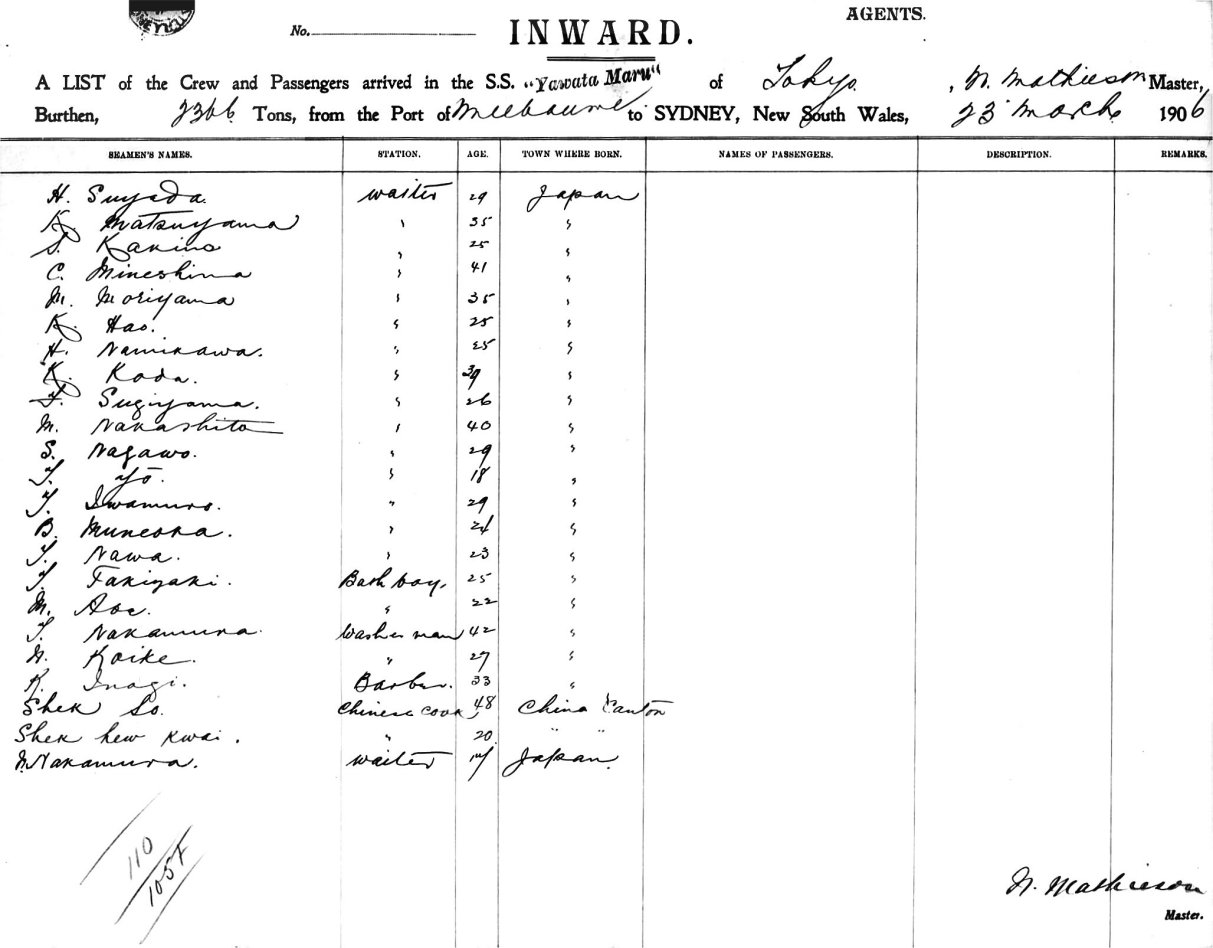 AGENTS.
No.
INWARD.
A LIST of the Crew and Passengers arrived in the S.S. "Yawata Maru" of Tokyo. , N. Mathieson Master,
Burthen, 2366 Tons, from the Port of Melbourne to SYDNEY, New South Wales, 23 March 1906
SEAMEN'S NAMES. STATION. AGE. TOWN WHERE BORN. NAMES OF PASSENGERS. DESCRIPTION. REMARKS.
H. Suyada. waiter 29 Japan
K. Matsuyama " 35 "
S. Kakino " 25 "
C. Mineshima " 41 "
M. Moriyama " 35 "
K. Hao. " 25 "
H. Namikawa. " 25 "
K. Koda. " 39 "
T. Sugiyama. " 26 "
M. Nakashita " 40 "
S. Nagawo. " 29 "
T. Yō. " 18 "
T. Iwamuro. " 29 "
B. Muneoka. " 24 "
T. Nawa. " 23 "
T. Takizaki. Bath boy. 25 "
M. Aoe. " 22 "
T. Nakamura. Washer man 42 "
N. Koike. " 27 "
K. Inagi. Barber. 33 "
Shek So. Chinese cook 48 China Canton
Shek hew Kwai. " 20 " "
Nakamura. waiter Japan.
110
1057
N. Mathieson
Master.